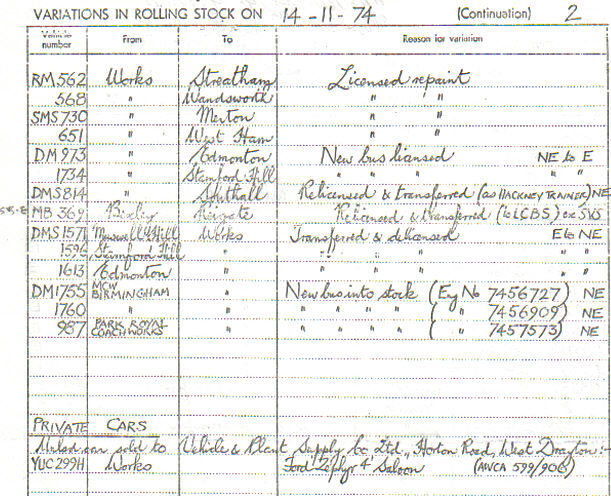 VARIATIONS IN ROLLING STOCK ON 14-11-74 (Continuation) 2
Vehicle number From To Reason for variation
RM 562 Works Streatham Licensed repaint
568 " Wandsworth " " "
SMS 730 " Merton " "
651 " West Ham " "
DM 973 " Edmonton New bus licensed NE to E
1734 " Stamford Hill " " " " "
DMS 814 " Southall Relicensed & transferred (as HACKNEY TRAINER) NE
MB 369 Bexley Reigate Relicensed & transferred (to LCBS) ex SVS
DMS 1571 Muswell Hill Works Transferred & delicensed E to NE
1596 Stamford Hill " " " " " "
1613 Edmonton " " " " " "
DM 1755 MCW BIRMINGHAM " New bus into stock (Eng No 7456727) NE
1760 " " " " " " ( " 7456909) NE
987 PARK ROYAL COACHWORKS " " " " " ( " 7457573) NE
PRIVATE CARS
car sold to Vehicle & Plant Supply Co Ltd., Horton Road, West Drayton:-
YUC 299H Works Ford Zephyr 4 Saloon (AWCA 599/906)